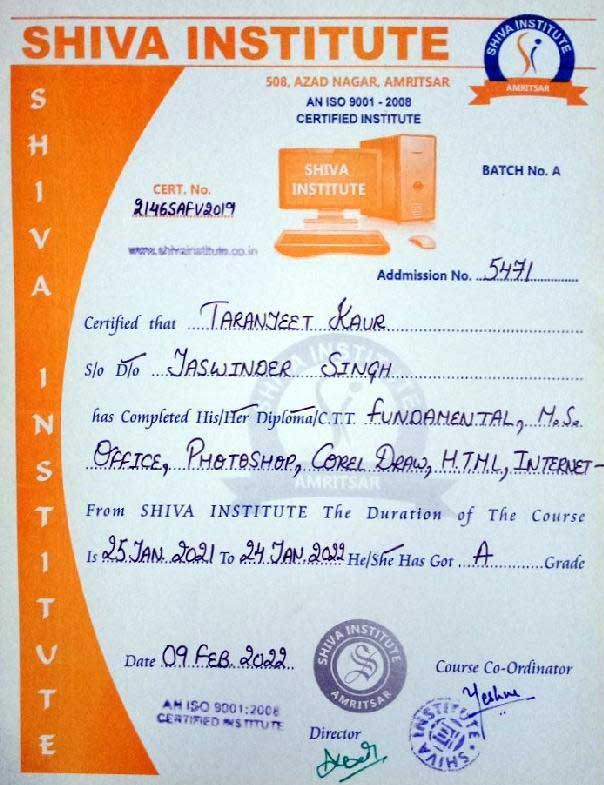 SHIVA INSTITUTE
SHIVA INSTITUTE
AMRITSAR
508, AZAD NAGAR, AMRITSAR
AN ISO 9001 - 2008
CERTIFIED INSTITUTE
SHIVA INSTITUTE
SHIVA
INSTITUTE
BATCH No. A
CERT. No.
2146SAFV2019
www.shivainstitute.co.in
Addmission No. 5471
Certified that TARANJEET KAUR
S/o D/o JASWINDER SINGH
has Completed His/Her Diploma/C.T.T. FUNDAMENTAL, M.S.
OFFICE, PHOTOSHOP, COREL DRAW, H.T.M.L, INTERNET-
SHIVA INSTITUTE
AMRITSAR
From SHIVA INSTITUTE The Duration of The Course
Is 25 JAN. 2021 To 24 JAN. 2022 He/She Has Got A Grade
Date 09 FEB. 2022
SHIVA INSTITUTE
S
AMRITSAR
Course Co-Ordinator
AN ISO 9001:2008
CERTIFIED INSTITUTE
Director
SHIVA INSTITUTE